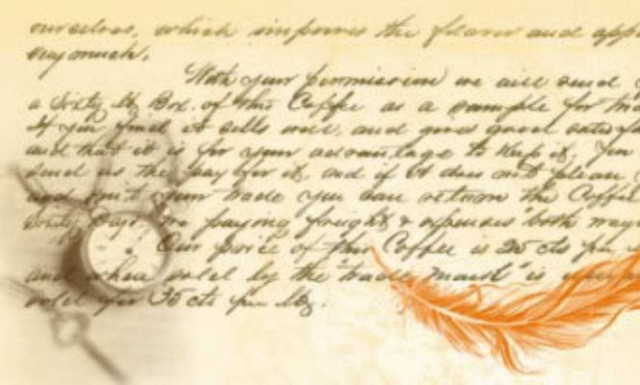 ourselves, which improves the flavor and
very much.
With your permission we will send
a sixty lb Box of this Coffee as a sample for
If you find it sells well, and gives good
and that it is for your advantage to keep it, you
send us the pay for it, and if it does not please
and suit your trade you can return the Coffee
sixty days we paying freight & expenses both ways
Our price of this Coffee is 25 cts per
and when sold by the "trade must" is
sold for 35 cts per lb.